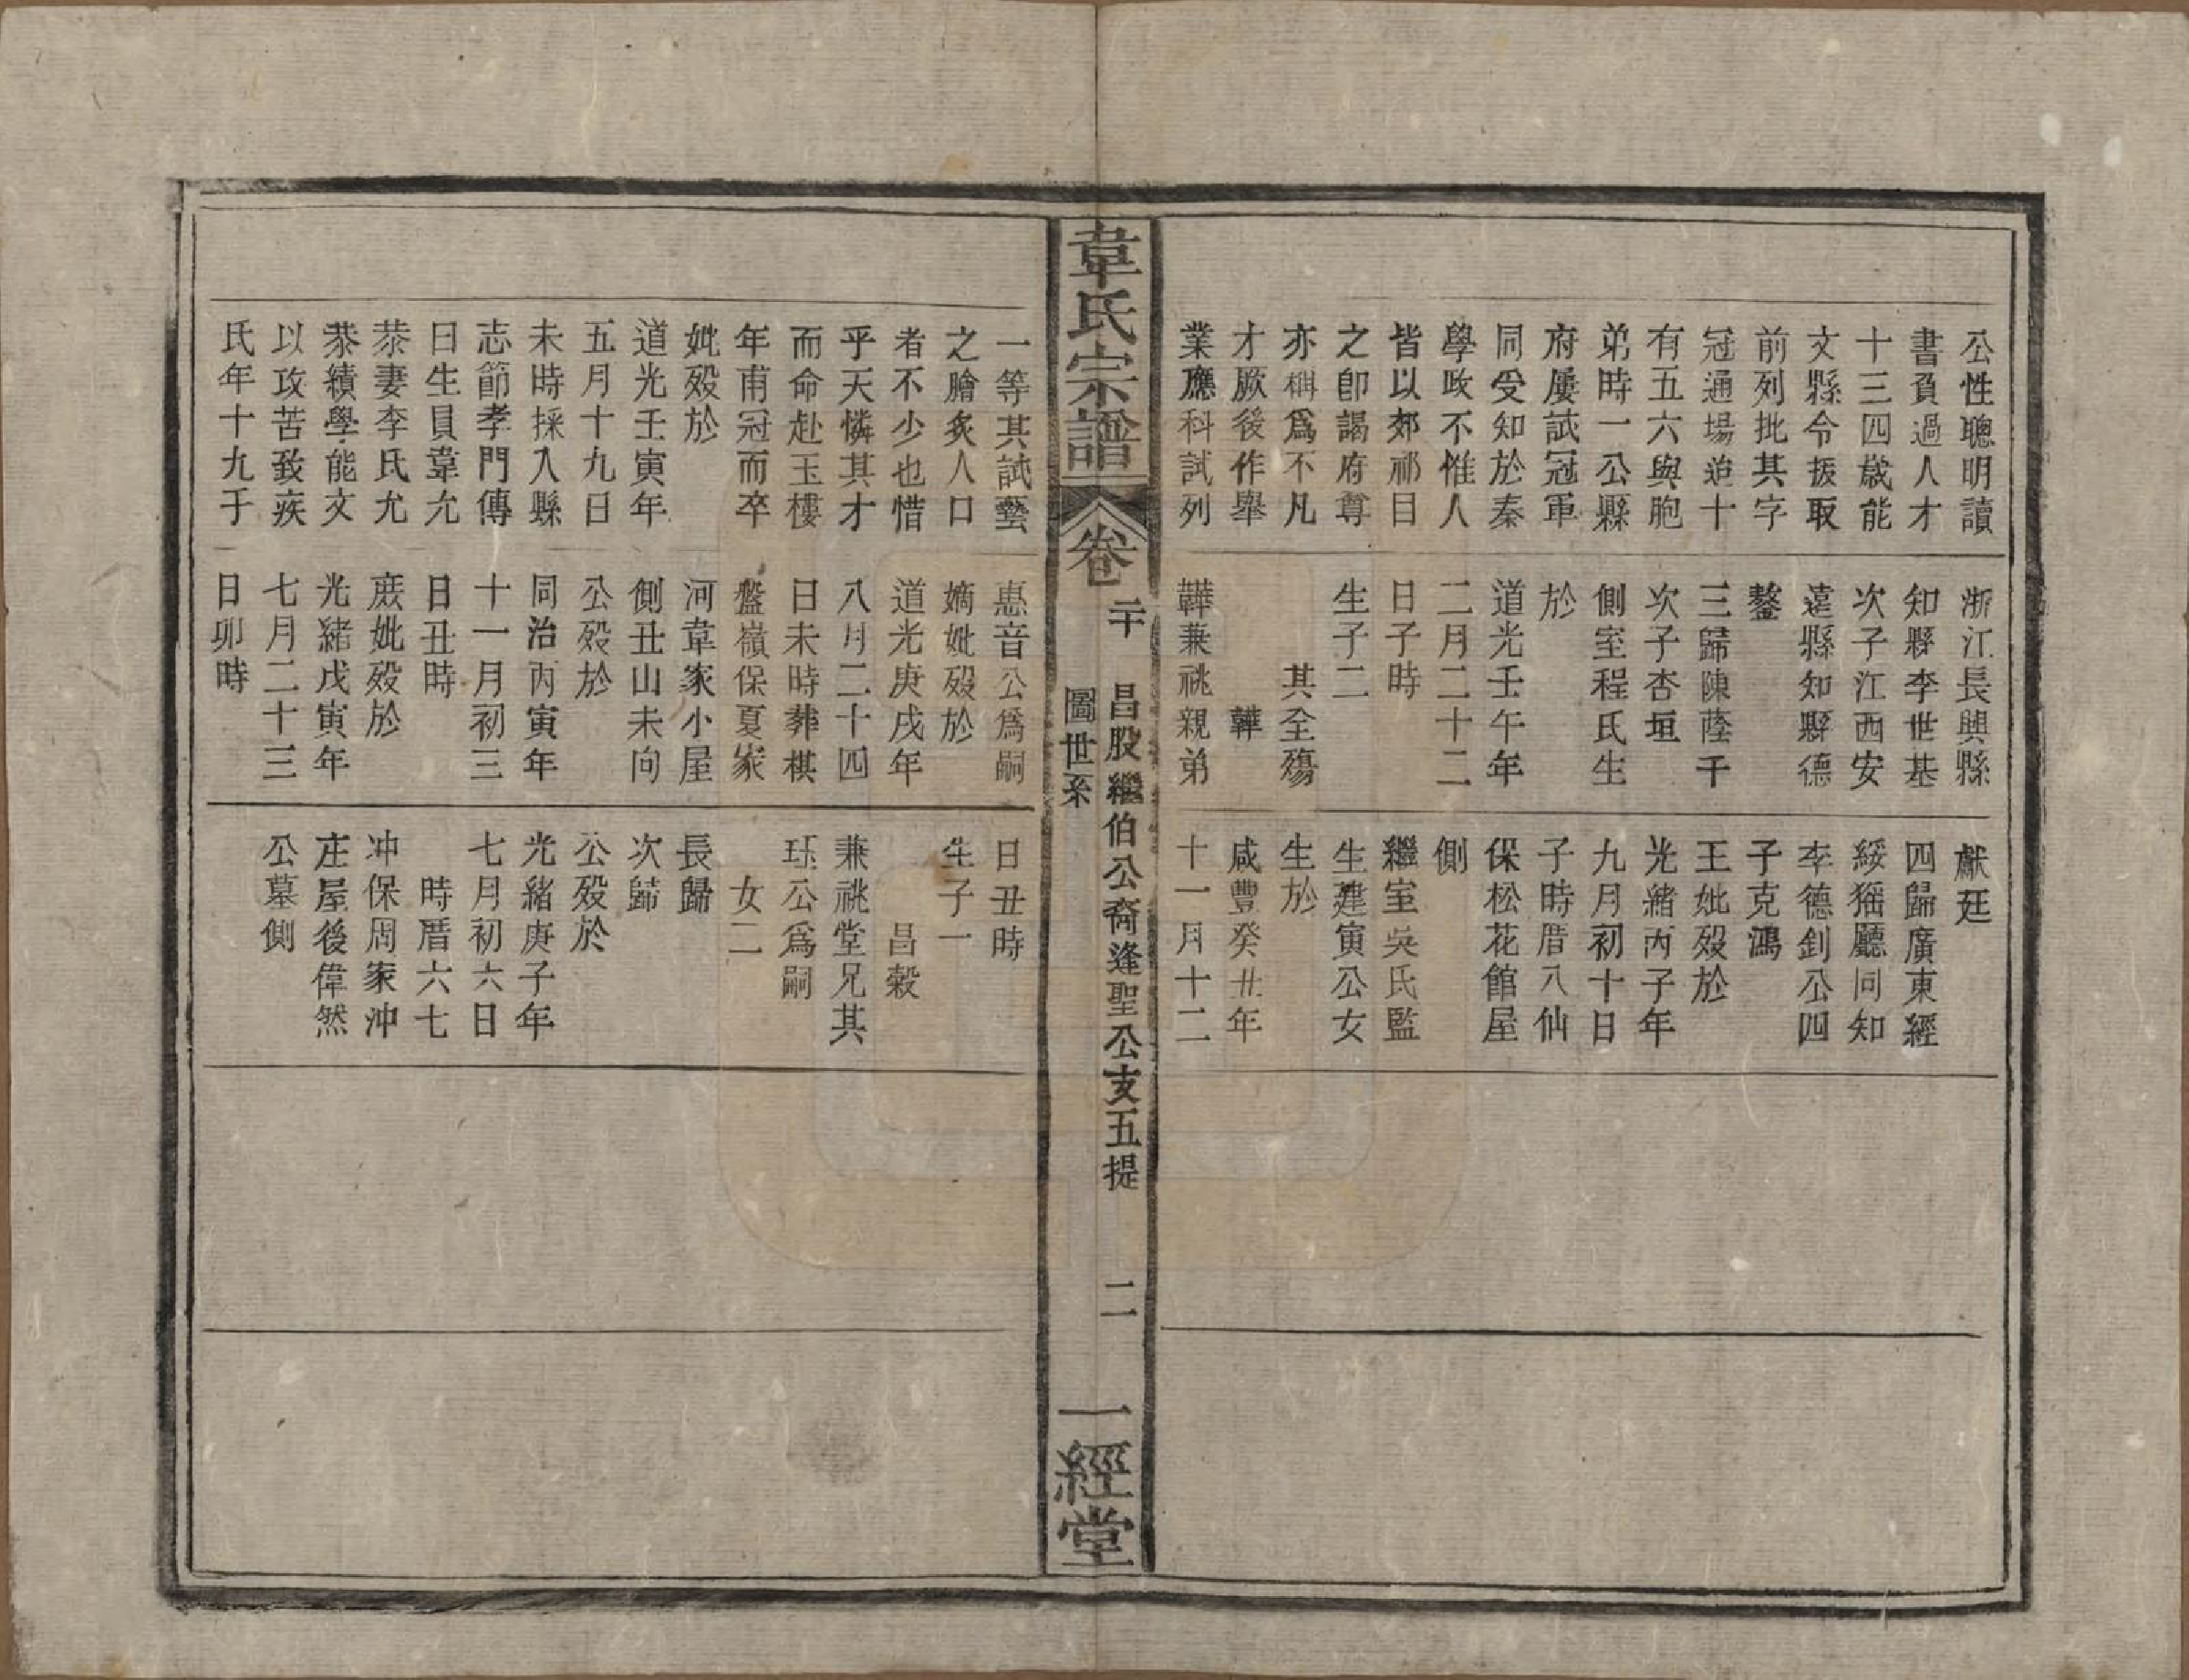 公性聰明讀
書負過人才
十三四歲能
文縣令援取
前列批其字
冠通場迨十
有五六與胞
弟時一公縣
府屢試冠軍
同受知於秦
學政不惟人
皆以郊祁目
之卽謁府尊
亦稱爲不凡
才厥後作舉
業應科試列
浙江長興縣
知縣李世基
次子江西安
遠縣知縣德
鏊
三歸陳蔭千
次子杏垣
側室程氏生
於
道光壬午年
二月二十二
日子時
生子二
其全殤
韡
韡兼祧親弟
獻廷
四歸廣東經
綏猺廳同知
李德釗公四
子克鴻
王妣歿於
光緒丙子年
九月初十日
子時厝八仙
保松花館屋
側
繼室吳氏監
生建寅公女
生於
咸豐癸丑年
十一月十二
韋氏宗譜
卷二十
昌股繼伯公裔逢聖公支五提
圖世系
二
一經堂
一等其試藝
之膾炙人口
者不少也惜
乎天憐其才
而命赴玉樓
年甫冠而卒
妣歿於
道光壬寅年
五月十九日
未時採入縣
志節孝門傳
曰生員韋允
恭妻李氏允
恭績學能文
以攻苦致疾
氏年十九于
惠音公爲嗣
嫡妣歿於
道光庚戌年
八月二十四
日未時葬棋
盤嶺保夏家
河韋家小屋
側丑山未向
公歿於
同治丙寅年
十一月初三
日丑時
庶妣歿於
光緒戊寅年
七月二十三
日卯時
日丑時
生子一
昌穀
兼祧堂兄其
珏公爲嗣
女二
長歸
次歸
公歿於
光緒庚子年
七月初六日
時厝六七
冲保周家沖
庄屋後偉然
公墓側